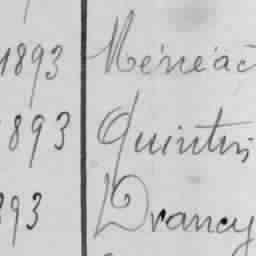 1893 Ménéac
1893 Quintin
893 Drancy